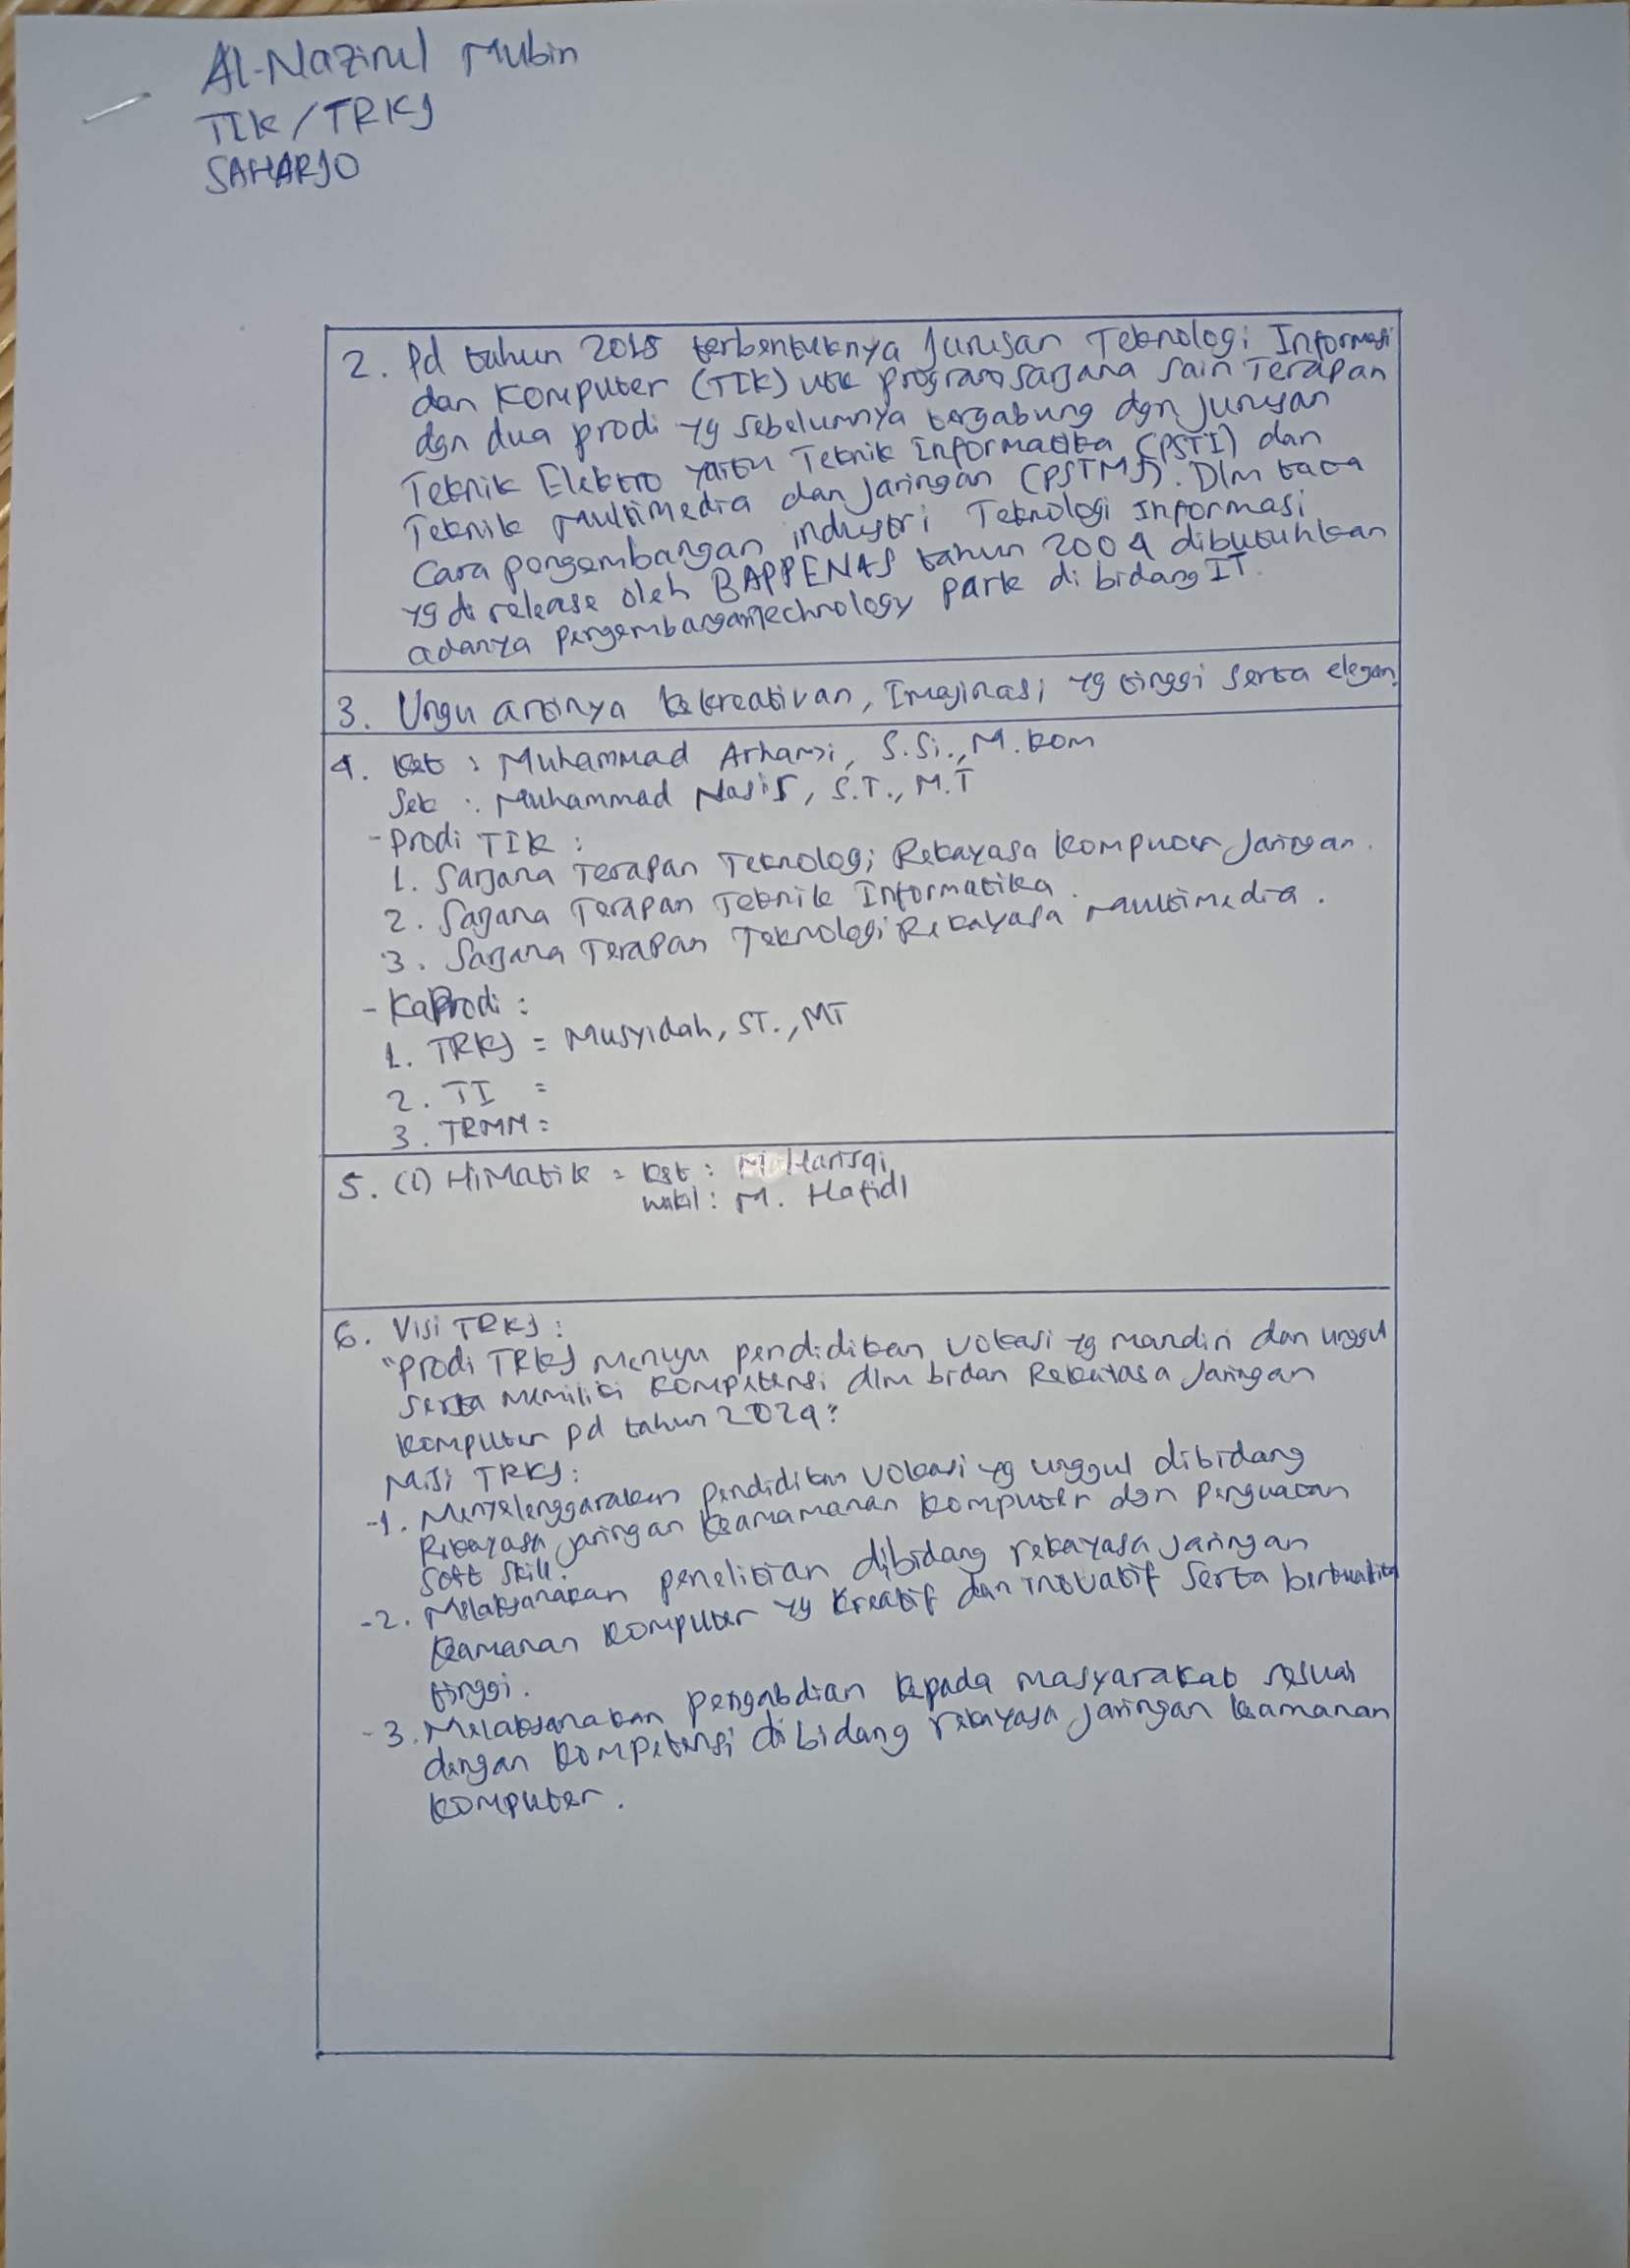 Al-Nazirul Mubin
TIK/TRKJ
SAHARJO
2. Pd tahun 2015 terbentuknya Jurusan Teknologi Informasi
dan Komputer (TIK) utk program sarjana sain Terapan
dgn dua prodi yg sebelumnya bergabung dgn jurusan
Teknik Elektro yaitu Teknik Informatika (PSTI) dan
Teknik Multimedia dan Jaringan (PSTMJ). Dlm tata
Cara pengembangan industri Teknologi Informasi
yg di release oleh BAPPENAS tahun 2004 dibutuhkan
adanya pengembangan technology park di bidang IT.
3. Ungu artinya kekreativan, Imajinasi yg tinggi serta elegan.
4. Ket : Muhammad Arhami, S.Si., M.Kom
Sek : Muhammad Nasir, S.T., M.T
- Prodi TIK :
1. Sarjana Terapan Teknologi Rekayasa Komputer Jaringan.
2. Sarjana Terapan Teknik Informatika.
3. Sarjana Terapan Teknologi Rekayasa Multimedia.
- KaProdi :
1. TRKJ = Musyidah, ST., MT
2. TI =
3. TRMM =
5. (1) HiMatik = Ket : M. Harisqi
wakil : M. Hafidl
6. Visi TRKJ :
"Prodi TRKJ Menuju pendidikan vokasi yg mandiri dan unggul
serta memiliki kompetensi dlm bidan Rekayasa Jaringan
Komputer pd tahun 2024"
Misi TRKJ :
-1. Menyelenggarakan pendidikan vokasi yg unggul dibidang
Rekayasa jaringan keamamanan komputer dgn penguatan
soft skill.
-2. Melaksanakan penelitian dibidang rekayasa jaringan
keamanan komputer yg kreatif dan inovatif serta berkualitas
tinggi.
-3. Melaksanakan pengabdian kepada masyarakat sesuai
dengan kompetensi dibidang rekayasa jaringan keamanan
komputer.